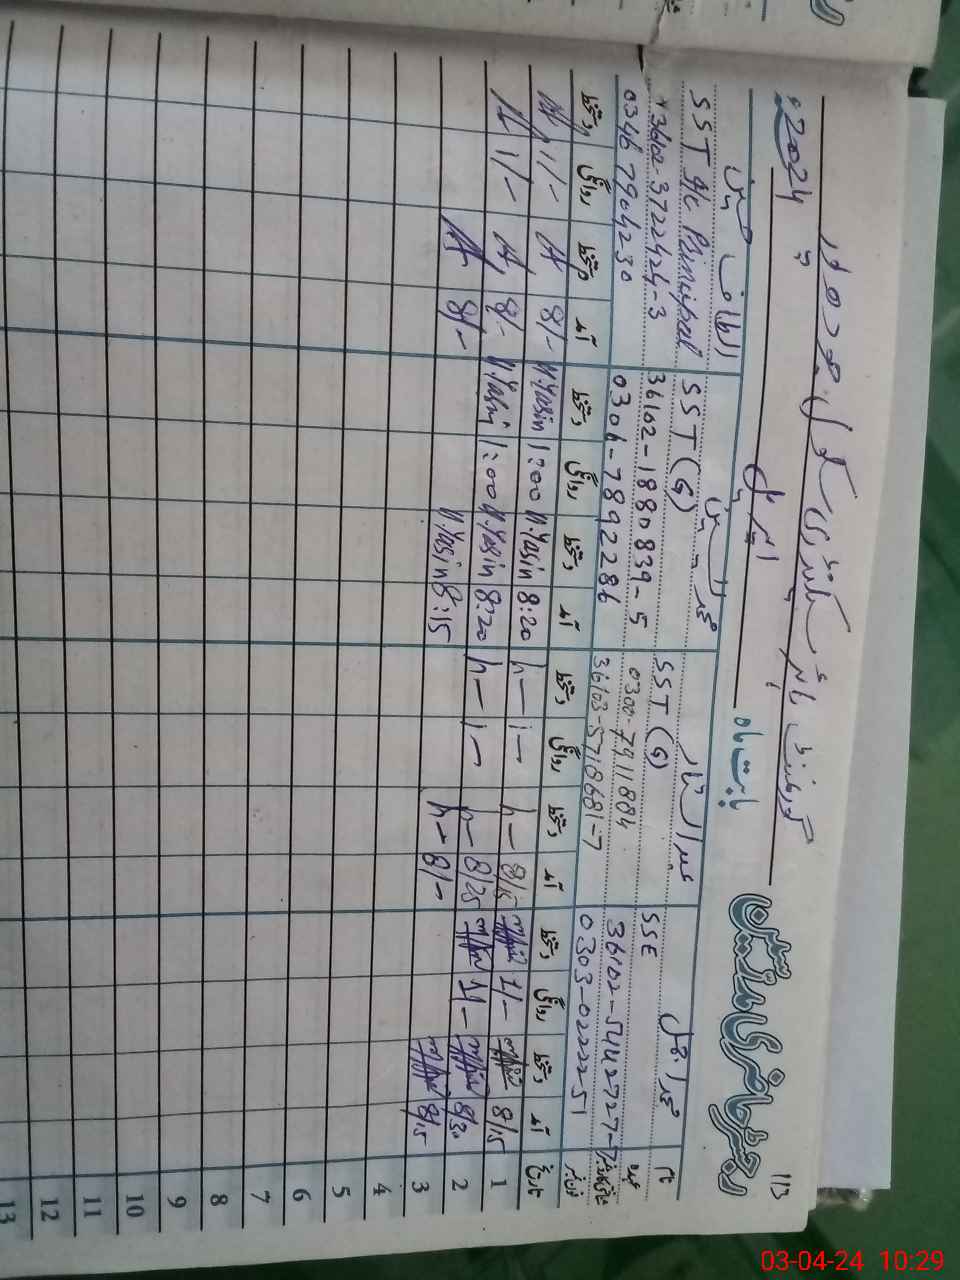 113
رجسٹر حاضری مدرسین
گورنمنٹ ہائر سیکنڈری سکول
بابت ماہ اپریل 2024ء
نام محمد افضل عبدالستار محمد یٰسین الطاف حسین
عہدہ SSE SST (G) SST (G) SST I/C Principal
شناختی کارڈ نمبر 36102-5442727-7 0300-7911884 36102-1880839-5 36102-3722424-3
فون نمبر 0303-0222251 36103-5718681-7 0306-7892286 0346 7904230
تاریخ آمد دستخط روانگی دستخط آمد دستخط روانگی دستخط آمد دستخط روانگی دستخط آمد دستخط روانگی دستخط
1 8/15 1/- 8/15 1- 8:20 M.Yasin 1:00 M.Yasin 8/- 1/-
2 8/30 1/- 8/25 1- 8:20 M.Yasin 1:00 M.Yasin 8/- 1/-
3 8/15 8/- 8:15 M.Yasin 8/-
4
5
6
7
8
9
10
11
12
13
03-04-24 10:29